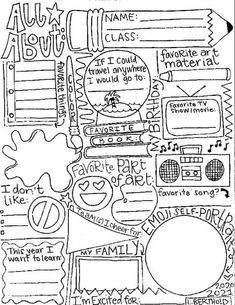 All
About:
NAME:
CLASS:
If I could
travel anywhere
I would go to:
favorite art
material
favorite things
COLOR:
BIRTHDAY:
Favorite TV
Show/movie:
FAVORITE
book!
Favorite
Part
of art:
favorite song?
I don't
like:
Team(s) I cheer for:
EMOJI SELF-PORTRAIT
This year I
want to learn:
MY FAMILY
I'm Excited for:
2020
2021